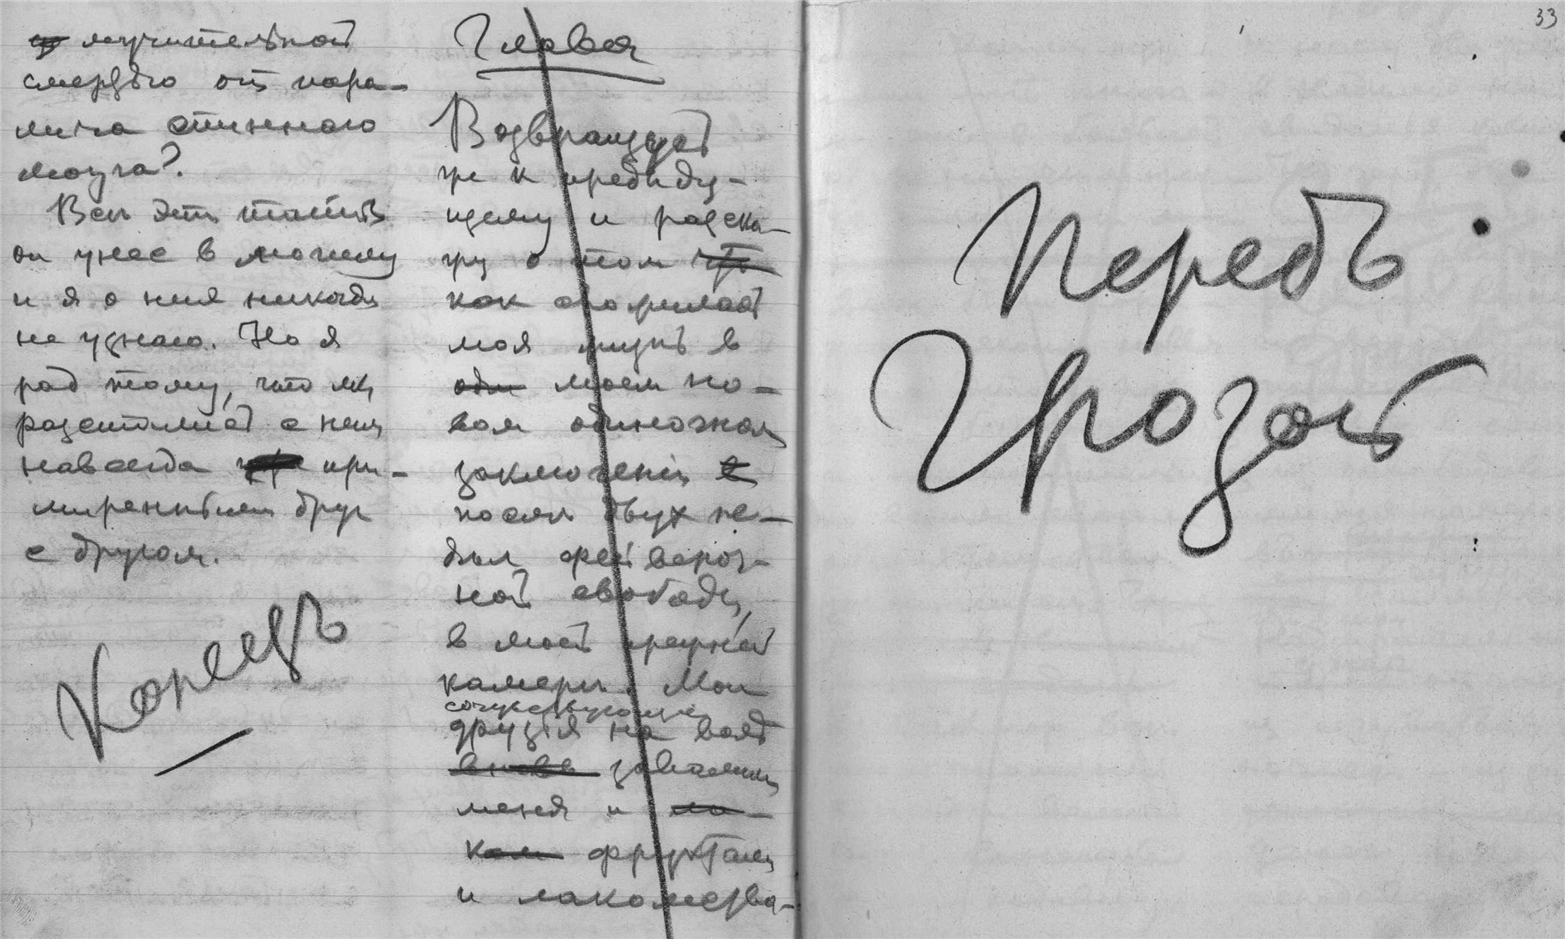 мучительной
смертью от пара-
лича спинного
мозга?
Все эти тайны
он унес в могилу
и я о них никогда
не узнаю. Но я
рад тому, что мы
разстались с ним
навсегда при-
миренными друг
с другом.
Конецъ
Глава
Возвращусь
же к предъиду-
щему и разска-
жу о том что
как сложилась
моя жизнь в
моем но-
вом одиночном
заключении
после двух не-
дель фейервероч-
ной свободы,
в моей прежней
камере. Мои
сочувствующие
друзья на воле
вновь завалили
меня и
фруктами
и лакомства-
33
Передъ
Грозой